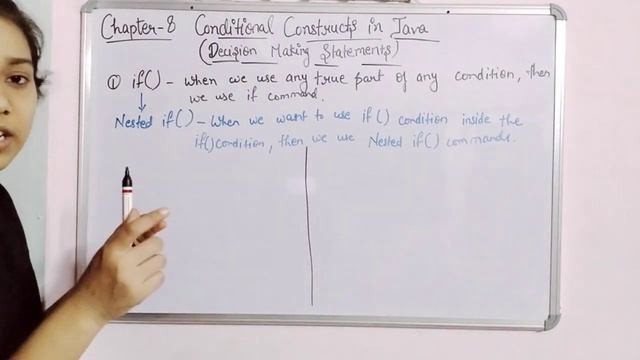 Chapter-8 Conditional Constructs in Java
(Decision Making Statements)
① if() - when we use any true part of any condition, then
we use if command.
Nested if() - When we want to use if() condition inside the
if() condition, then we use Nested if() commands.